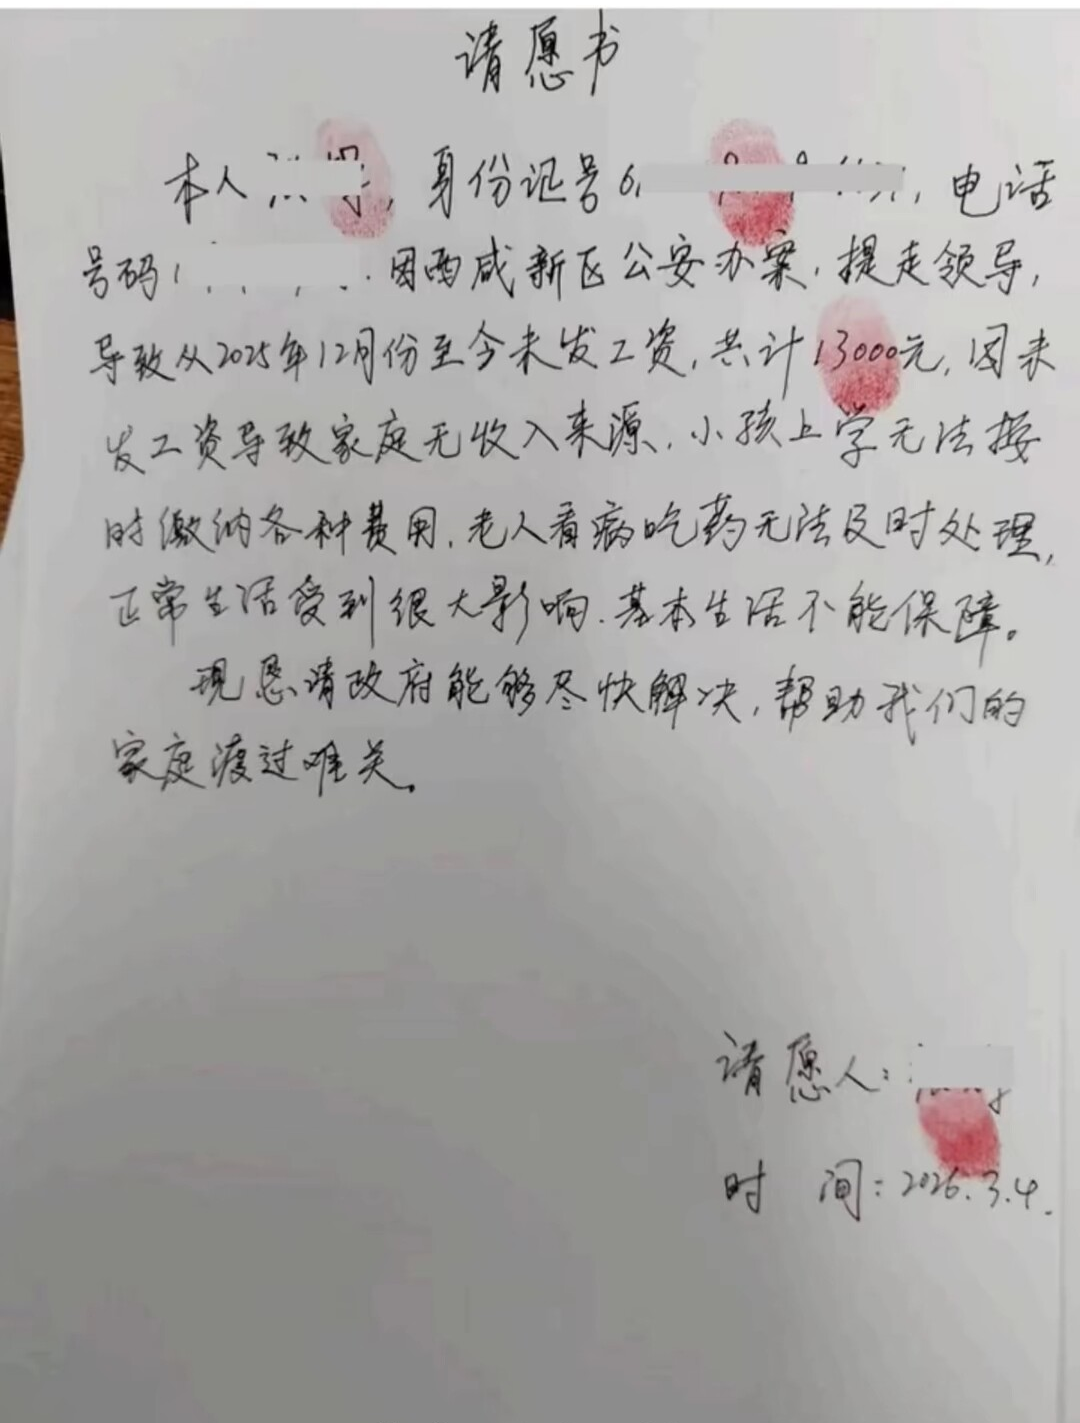 请愿书
本人 , 身份证号6 , 电话
号码1 . 因西咸新区公安办案, 提走领导,
导致从2025年12月份至今未发工资, 共计13000元, 因未
发工资导致家庭无收入来源, 小孩上学无法按
时缴纳各种费用, 老人看病吃药无法及时处理,
正常生活受到很大影响, 基本生活不能保障。
现恳请政府能够尽快解决, 帮助我们的
家庭渡过难关。
请愿人:
时 间: 2026.3.4.